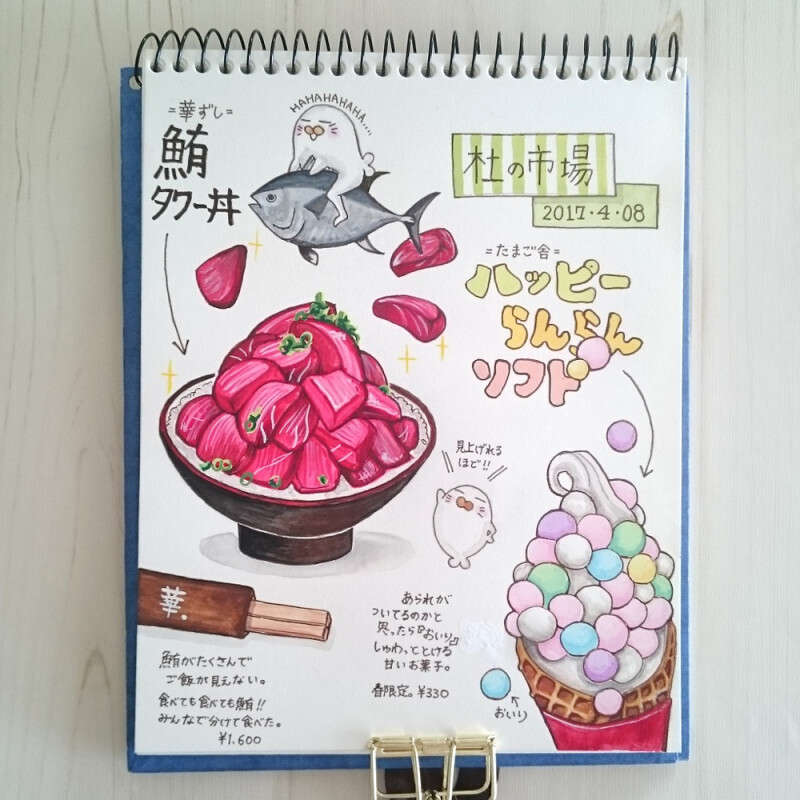 =華ずし=
鮪
タワー丼
HAHAHAHAHA...
杜の市場
2017・4・08
=たまご舎=
ハッピー
らんらん
ソフト
見上げれる
ほど!!
華.
鮪がたくさんで
ご飯が見えない。
食べても食べても鮪!!
みんなで分けて食べた。
¥1,600
あられが
ついてるのかと
思ったら『おいり』
しゅわっととける
甘いお菓子。
春限定。¥330
おいり